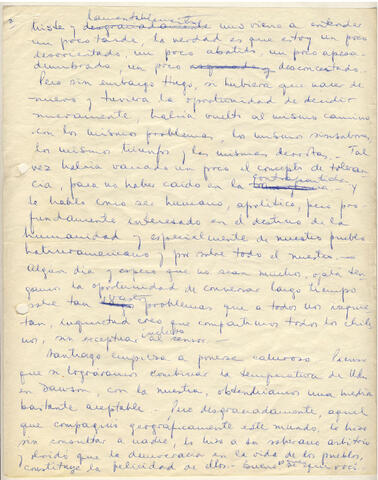 lamentablemente
triste y desgraciadamente uno viene a entender
un poco tarde. La verdad es que estoy un poco
desorientado, un poco abatido, un poco apesa-
dumbrado, un poco y desconcertado.
Pero sin embargo Hugo, si hubiera que nacer de
nuevo y tuviera la oportunidad de decidir
nuevamente, habría vuelto al mismo camino
con los mismos problemas, los mismos sinsabores,
los mismos triunfos y las mismas derrotas. Tal
vez habría variado un poco el concepto de toleran
cia, para no haber caído en la y
te hablo como ser humano, apolítico, pero pro
fundamente interesado en el destino de la
humanidad y especialmente de nuestro pueblo
latinoamericano y por sobre todo el nuestro.
Algún día y espero que no sean muchos, ojalá ten
gamos la oportunidad de conversar largo tiempo
sobre tan problemas que a todos nos inquie
tan, inquietud creo que compartimos todos los chile
nos, sin exceptuar incluso al
Santiago empieza a ponerse caluroso. Pienso
que si lográramos combinar la temperatura de Uds
en Dawson, con la nuestra, obtendríamos una media
bastante aceptable. Pero desgraciadamente, aquel
que compaginó geográficamente este mundo, lo hizo
sin consultar a nadie, lo hizo a su soberano arbitrio
y olvidó que la democracia en la vida de los pueblos,
constituye la felicidad de ellos. Bueno